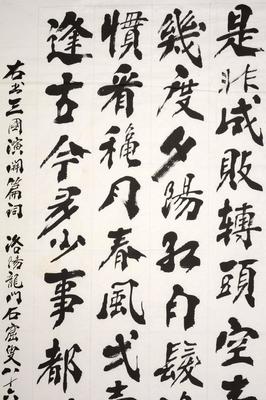 是非成敗轉頭空
幾度夕陽紅白髮
慣看穐月春風弌
逢古今多少事都
右书三國演開篇詞 洛陽龍門石窟叟八十六